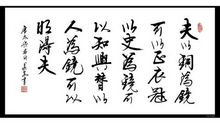 夫以銅為鏡
可以正衣冠
以史為鏡可
以知興替以
人為鏡可以
明得失